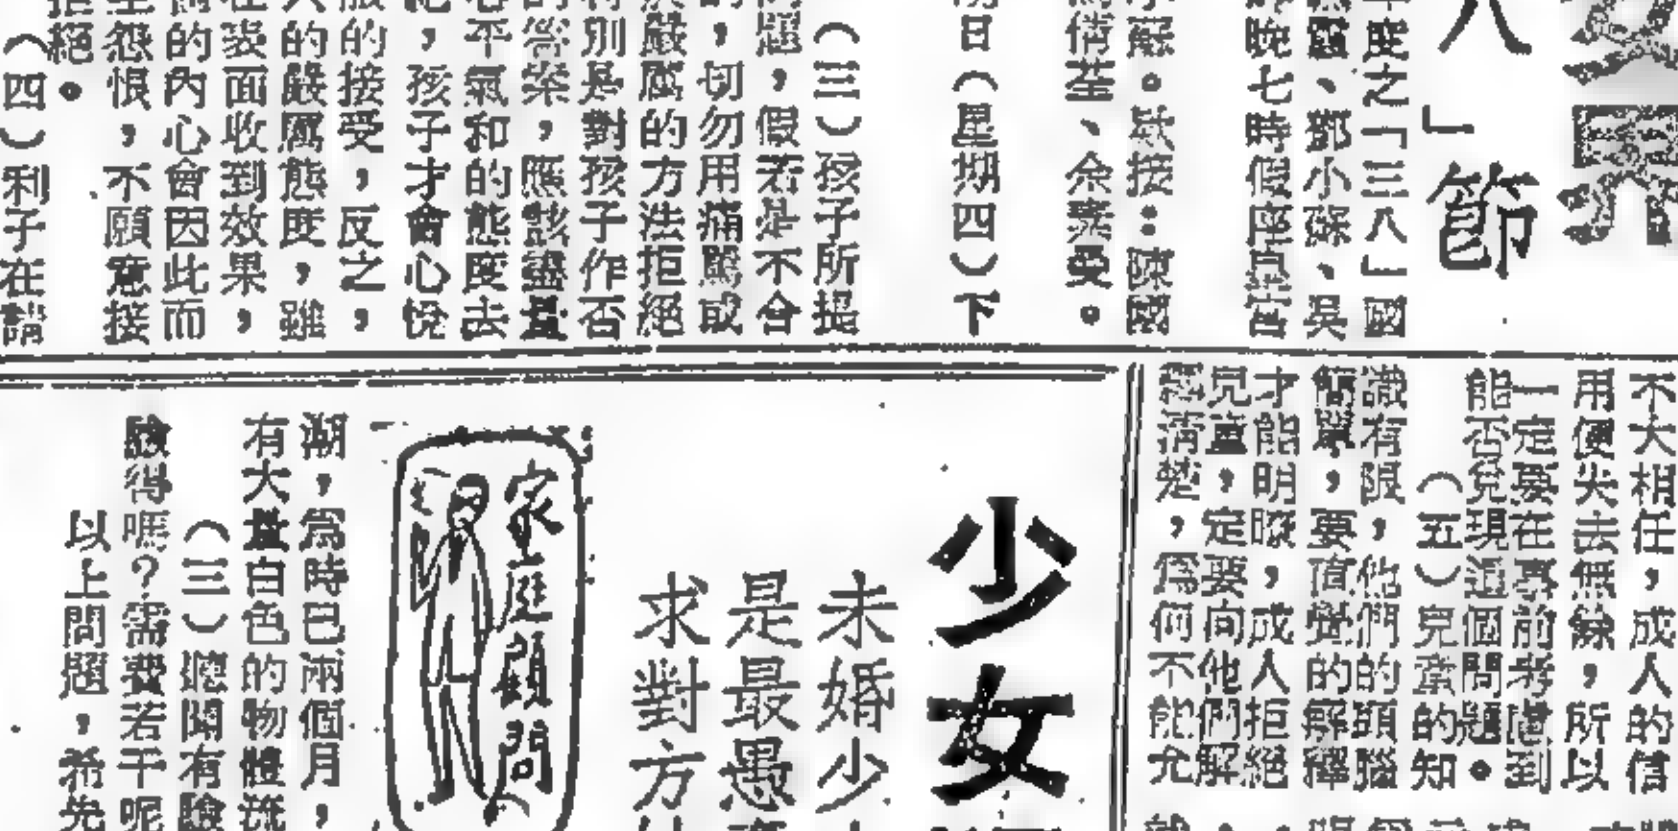 女界
八」節
年度之「三八」國
鄧小蘇、吳
晚七時假座
小蘇。
倩荃、余
期日（星期四）下
（三）孩子所提
問題，假若是不合
，切勿用痛罵或
嚴厲的方法拒絕
特別是對孩子作否
的答案，應該盡量
心平氣和的態度去
，孩子才會心悅
服的接受，反之，
人的嚴厲態度，雖
在表面收到效果，
的內心會因此而
生怨恨，不願意接
拒絕。
（四）利子在
不大相任，成人的信
用便失去無餘，所以
一定要在事前考慮到
能否兌現這個問題。
（五）兒童的知
識有限，他們的頭腦
簡單，要直覺的解釋
才能明瞭，成人拒絕
兒童，定要向他們解
清楚，爲何不能允
少女
未婚少
是最愚
求對方
家庭顧問
潮，爲時已兩個月，
有大量白色的物體流
（三）聽聞有驗
驗得嗎？需費若干呢
以上問題，希先